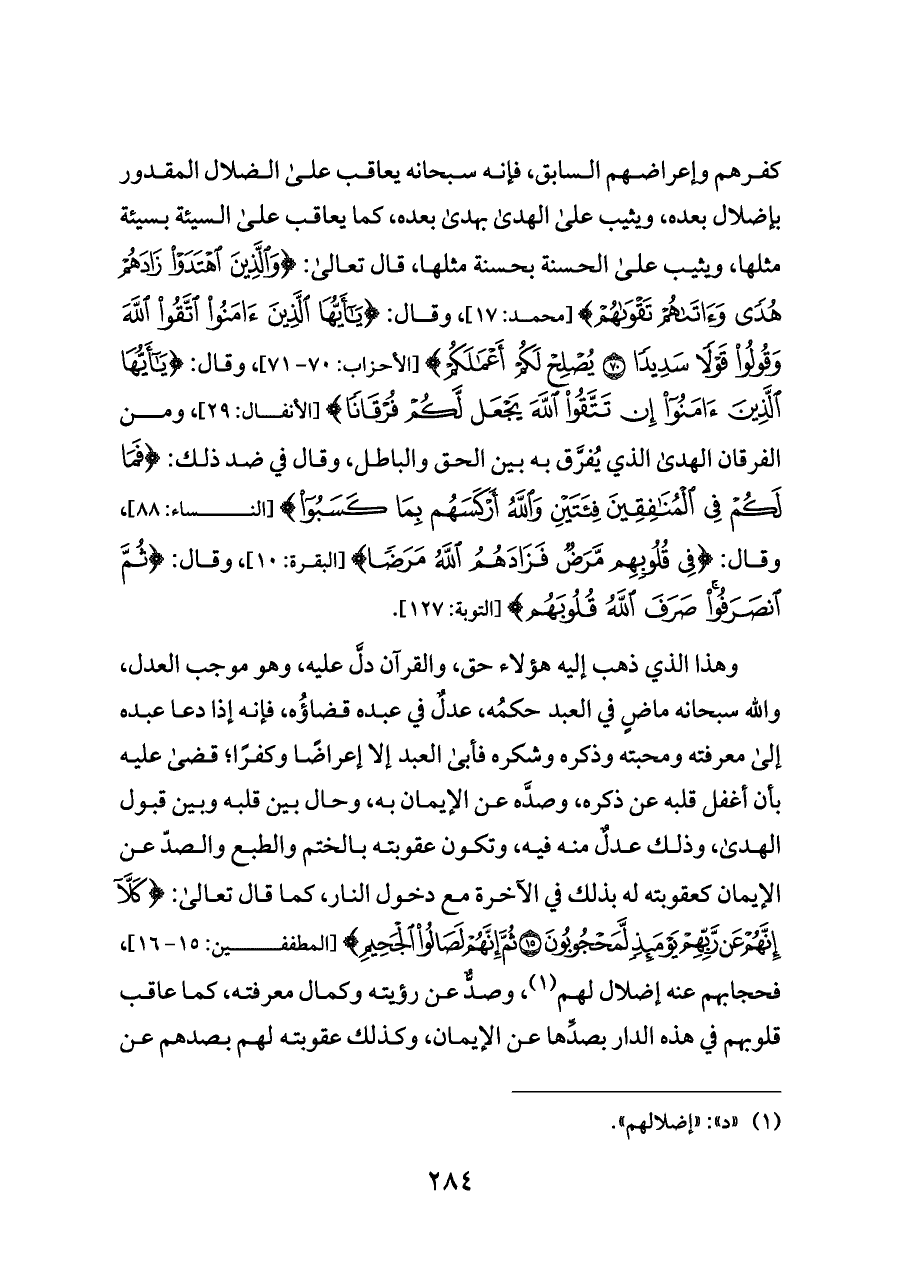 كفرهم وإعراضهم السابق، فإنه سبحانه يعاقب علىٰ الضلال المقدور
بإضلال بعده، ويثيب علىٰ الهدىٰ بهدىٰ بعده، كما يعاقب علىٰ السيئة بسيئة
مثلها، ويثيب علىٰ الحسنة بحسنة مثلها، قال تعالىٰ: ﴿وَٱلَّذِينَ ٱهۡتَدَوۡاْ زَادَهُمۡ
هُدٗى وَءَاتَىٰهُمۡ تَقۡوَىٰهُمۡ﴾ [محمد: ١٧]، وقال: ﴿يَٰٓأَيُّهَا ٱلَّذِينَ ءَامَنُواْ ٱتَّقُواْ ٱللَّهَ
وَقُولُواْ قَوۡلٗا سَدِيدٗا ٧٠ يُصۡلِحۡ لَكُمۡ أَعۡمَٰلَكُمۡ﴾ [الأحزاب: ٧٠-٧١]، وقال: ﴿يَٰٓأَيُّهَا
ٱلَّذِينَ ءَامَنُوٓاْ إِن تَتَّقُواْ ٱللَّهَ يَجۡعَل لَّكُمۡ فُرۡقَانٗا﴾ [الأنفال: ٢٩]، ومن
الفرقان الهدىٰ الذي يُفرَّق به بين الحق والباطل، وقال في ضد ذلك: ﴿فَمَا
لَكُمۡ فِي ٱلۡمُنَٰفِقِينَ فِئَتَيۡنِ وَٱللَّهُ أَرۡكَسَهُم بِمَا كَسَبُوٓاْ﴾ [النساء: ٨٨]،
وقال: ﴿فِي قُلُوبِهِم مَّرَضٞ فَزَادَهُمُ ٱللَّهُ مَرَضٗا﴾ [البقرة: ١٠]، وقال: ﴿ثُمَّ
ٱنصَرَفُواْۚ صَرَفَ ٱللَّهُ قُلُوبَهُم﴾ [التوبة: ١٢٧].
وهذا الذي ذهب إليه هؤلاء حق، والقرآن دلَّ عليه، وهو موجب العدل،
والله سبحانه ماضٍ في العبد حكمُه، عدلٌ في عبده قضاؤُه، فإنه إذا دعا عبده
إلىٰ معرفته ومحبته وذكره وشكره فأبىٰ العبد إلا إعراضًا وكفرًا؛ قضىٰ عليه
بأن أغفل قلبه عن ذكره، وصدَّه عن الإيمان به، وحال بين قلبه وبين قبول
الهدىٰ، وذلك عدلٌ منه فيه، وتكون عقوبته بالختم والطبع والصدّ عن
الإيمان كعقوبته له بذلك في الآخرة مع دخول النار، كما قال تعالىٰ: ﴿كَلَّآ
إِنَّهُمۡ عَن رَّبِّهِمۡ يَوۡمَئِذٖ لَّمَحۡجُوبُونَ ١٥ ثُمَّ إِنَّهُمۡ لَصَالُواْ ٱلۡجَحِيمِ﴾ [المطففين: ١٥-١٦]،
فحجابهم عنه إضلال لهم(١)، وصدٌّ عن رؤيته وكمال معرفته، كما عاقب
قلوبهم في هذه الدار بصدِّها عن الإيمان، وكذلك عقوبته لهم بصدهم عن
(١) «د»: «إضلالهم».
٢٨٤